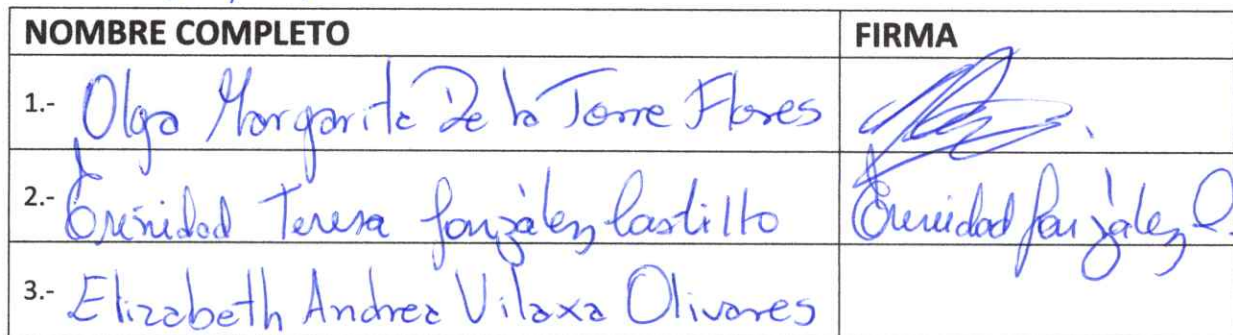 NOMBRE COMPLETO FIRMA
1.- Olga Margarita De la Torre Flores
2.- Trinidad Teresa González Castillo Trinidad González C.
3.- Elizabeth Andrea Vilaxa Olivares